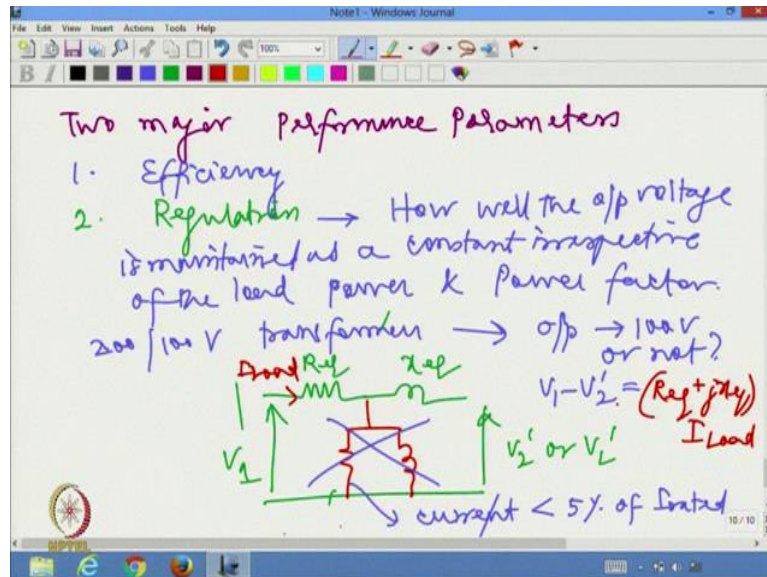 Note1 - Windows Journal
File Edit View Insert Actions Tools Help
100%
B I
Two major Performance Parameters
1. Efficiency
2. Regulation → How well the o/p voltage
is maintained as a constant irrespective
of the load power & Power factor.
200/100 V transformer → o/p → 100V
or not?
ILoad Req xeq
V1 - V2' = (Req + jxeq)
ILoad
V1
V2' or VL'
current < 5% of Irated
10/10
NPTEL